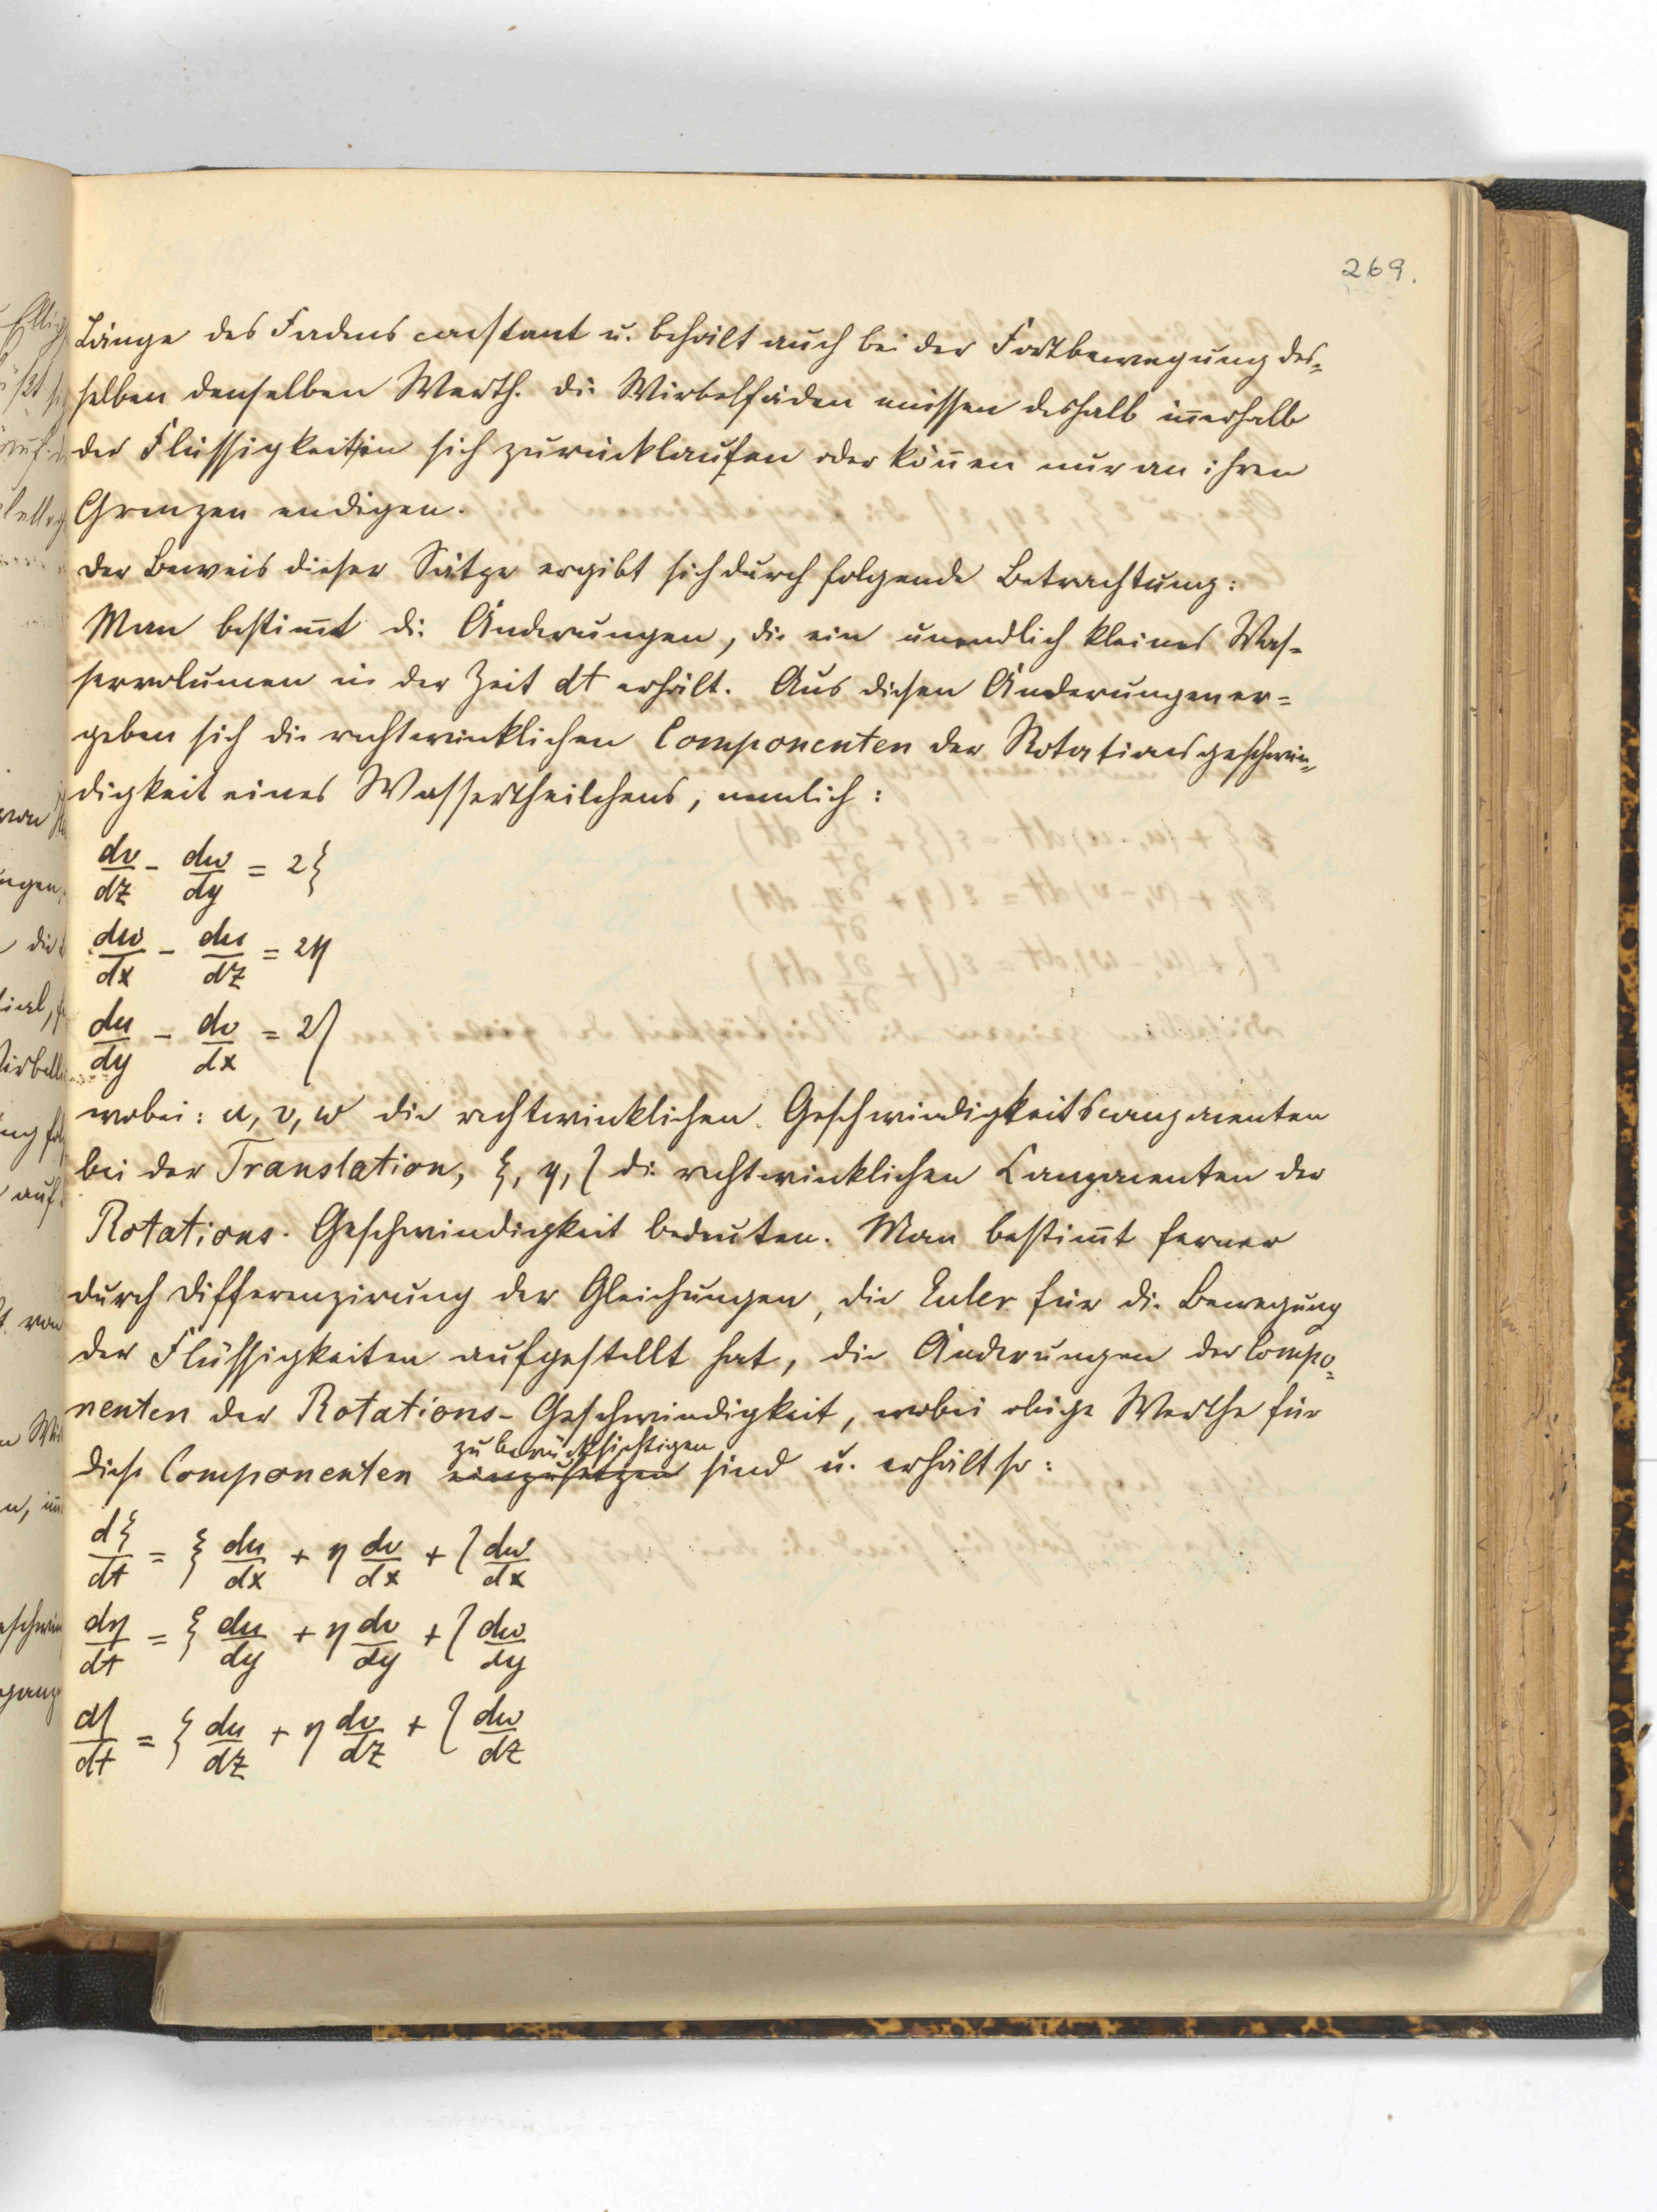 269.
Länge des Fadens constant u. behält auch bei der Fortbewegung des=
selben denselben Werth. Die Wirbelfäden müssen deshalb iñerhalb
der Flüssigkeit in sich zurücklaufen oder köñen nur an ihren
Grenzen endigen.
Der Beweis dieser Sätze ergibt sich durch folgende Betrachtung:
Man bestim̄t die Änderungen, die ein unendlich kleines Was-
servolumen in der Zeit dt erhält. Aus diesen Änderungen er=
geben sich die rechtwinklichen Componenten der Rotationsgeschwin=
digkeit eines Wassertheilchens, nemlich:
dv/dz - dw/dy = 2ξ
dw/dx - du/dz = 2η
du/dy - dv/dx = 2ζ
wobei: u, v, w die rechtwinklichen Geschwindigkeitscomponenten
bei der Translation, ξ, η, ζ die rechtwinklichen Componenten der
Rotations-Geschwindigkeit bedeuten. Man bestim̄t ferner
durch Differenzirung der Gleichungen, die Euler für die Bewegung
der Flüssigkeiten aufgestellt hat, die Änderungen der Compo=
nenten der Rotations-Geschwindigkeit, wobei obige Werthe für
zu berücksichtigen
diese Componenten einzusetzen sind u. erhält so:
dξ/dt = ξ du/dx + η dv/dx + ζ dw/dx
dη/dt = ξ du/dy + η dv/dy + ζ dw/dy
dζ/dt = ξ du/dz + η dv/dz + ζ dw/dz